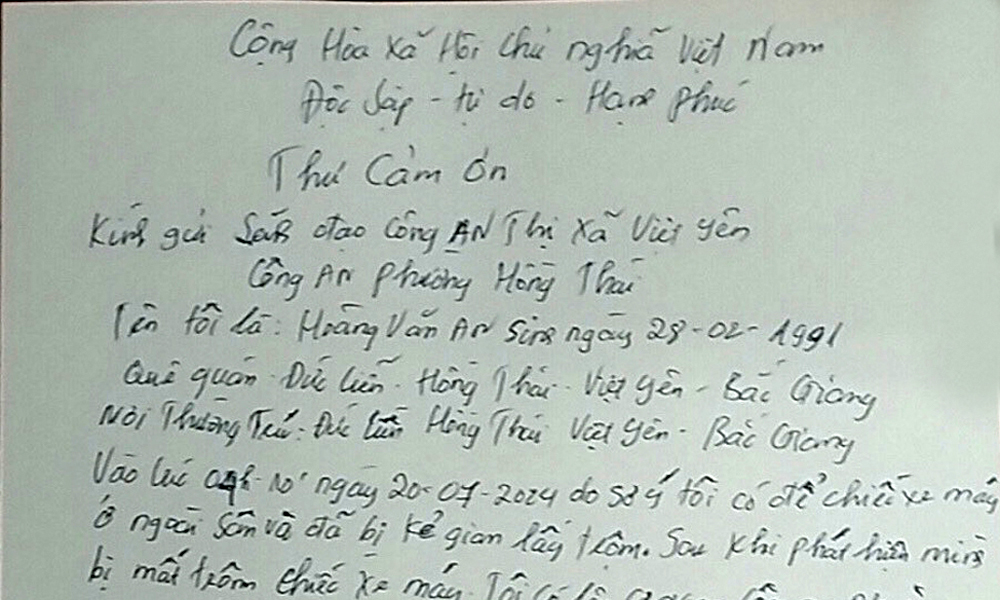 Cộng Hòa Xã Hội Chủ nghĩa Việt Nam
Độc Lập - tự do - Hạnh phúc
Thư Cảm ơn
Kính gửi Lãnh đạo Công AN Thị Xã Việt yên
Công AN phường Hồng Thái
Tên tôi là: Hoàng Văn AN Sinh ngày 28-02-1991
Quê quán - Đức Liễn - Hồng Thái - Việt yên - Bắc Giang
Nơi Thường Trú: Đức Liễn Hồng Thái Việt yên - Bắc Giang
Vào lúc 04h-10' ngày 20-07-2024 do sơ ý tôi có để chiếc xe máy
ở ngoài sân và đã bị kẻ gian lấy trộm. Sau khi phát hiện mình
bị mất trộm chiếc xe máy. Tôi có